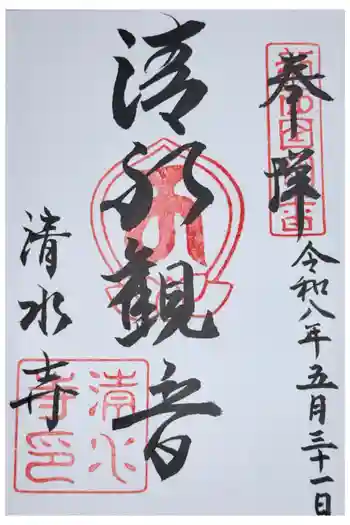 奉拝
令和八年五月三十一日
清水観音
清水寺
清水寺印